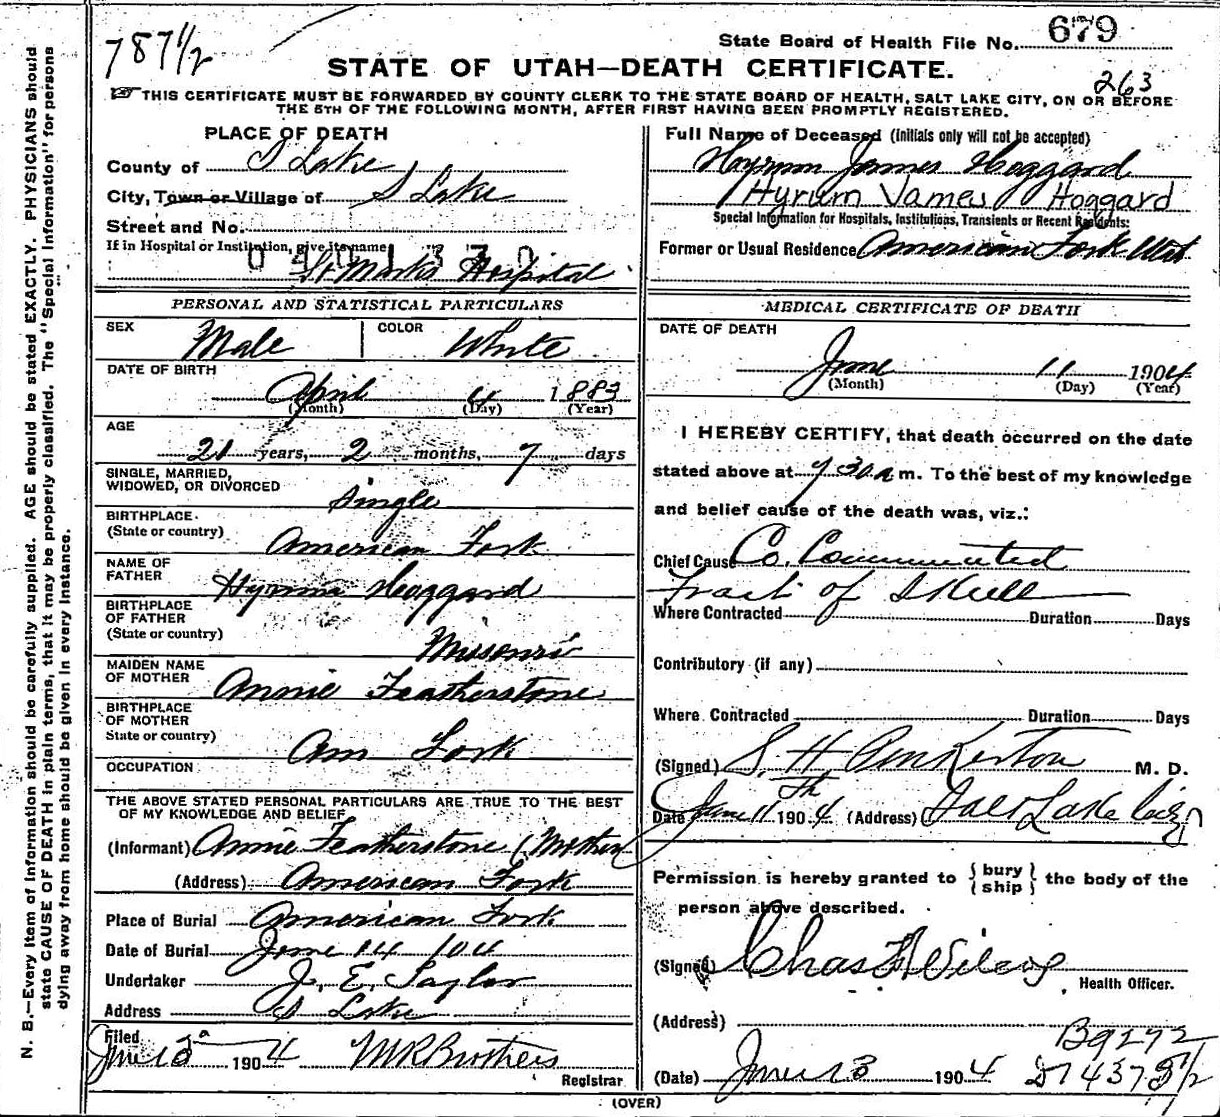 787 1/2
State Board of Health File No. 679
STATE OF UTAH—DEATH CERTIFICATE.
263
THIS CERTIFICATE MUST BE FORWARDED BY COUNTY CLERK TO THE STATE BOARD OF HEALTH, SALT LAKE CITY, ON OR BEFORE
THE 5TH OF THE FOLLOWING MONTH, AFTER FIRST HAVING BEEN PROMPTLY REGISTERED.
PLACE OF DEATH
County of S Lake
City, Town or Village of S Lake
Street and No.
If in Hospital or Institution, give its name
St Marks Hospital
Full Name of Deceased (Initials only will not be accepted)
Hyrum James Hoggard
Hyrum James Hoggard
Special Information for Hospitals, Institutions, Transients or Recent Residents:
Former or Usual Residence American Fork Utah
PERSONAL AND STATISTICAL PARTICULARS
SEX Male COLOR White
DATE OF BIRTH
April 4 1883
(Month) (Day) (Year)
AGE
21 years, 2 months, 7 days
SINGLE, MARRIED,
WIDOWED, OR DIVORCED Single
BIRTHPLACE
(State or country) American Fork
NAME OF
FATHER Hyrum Hoggard
BIRTHPLACE
OF FATHER
(State or country) Missouri
MAIDEN NAME
OF MOTHER Annie Featherstone
BIRTHPLACE
OF MOTHER
State or country) Am Fork
OCCUPATION
THE ABOVE STATED PERSONAL PARTICULARS ARE TRUE TO THE BEST
OF MY KNOWLEDGE AND BELIEF
(Informant) Annie Featherstone (Mother
(Address) American Fork
Place of Burial American Fork
Date of Burial June 14 104
Undertaker J. E. Taylor
Address S Lake
Filed
June 13 1904 M R Brothers
Registrar
MEDICAL CERTIFICATE OF DEATH
DATE OF DEATH
June 11 1904
(Month) (Day) (Year)
I HEREBY CERTIFY, that death occurred on the date
stated above at 7 30 a m. To the best of my knowledge
and belief cause of the death was, viz.:
Chief Cause Co. Communited
Fract of Skull
Where Contracted Duration Days
Contributory (if any)
Where Contracted Duration Days
(Signed) S. H. Pinkerton M. D.
Date June 11th 1904 (Address) Salt Lake City
Permission is hereby granted to {bury
ship} the body of the
person above described.
(Signed) Chas F Wilcox
Health Officer.
(Address)
B9272
(Date) June 13 1904 D14375 1/2
(OVER)
N. B.—Every item of information should be carefully supplied. AGE should be stated EXACTLY. PHYSICIANS should
state CAUSE OF DEATH in plain terms, that it may be properly classified. The "Special Information" for persons
dying away from home should be given in every instance.